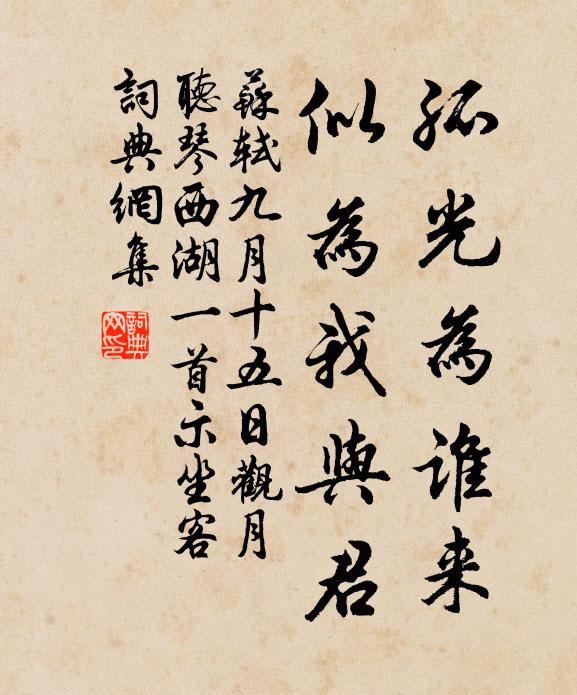 孤光為誰来
似為我與君
蘇軾九月十五日觀月
聽琴西湖一首示坐客
詞典網集
詞典
网印